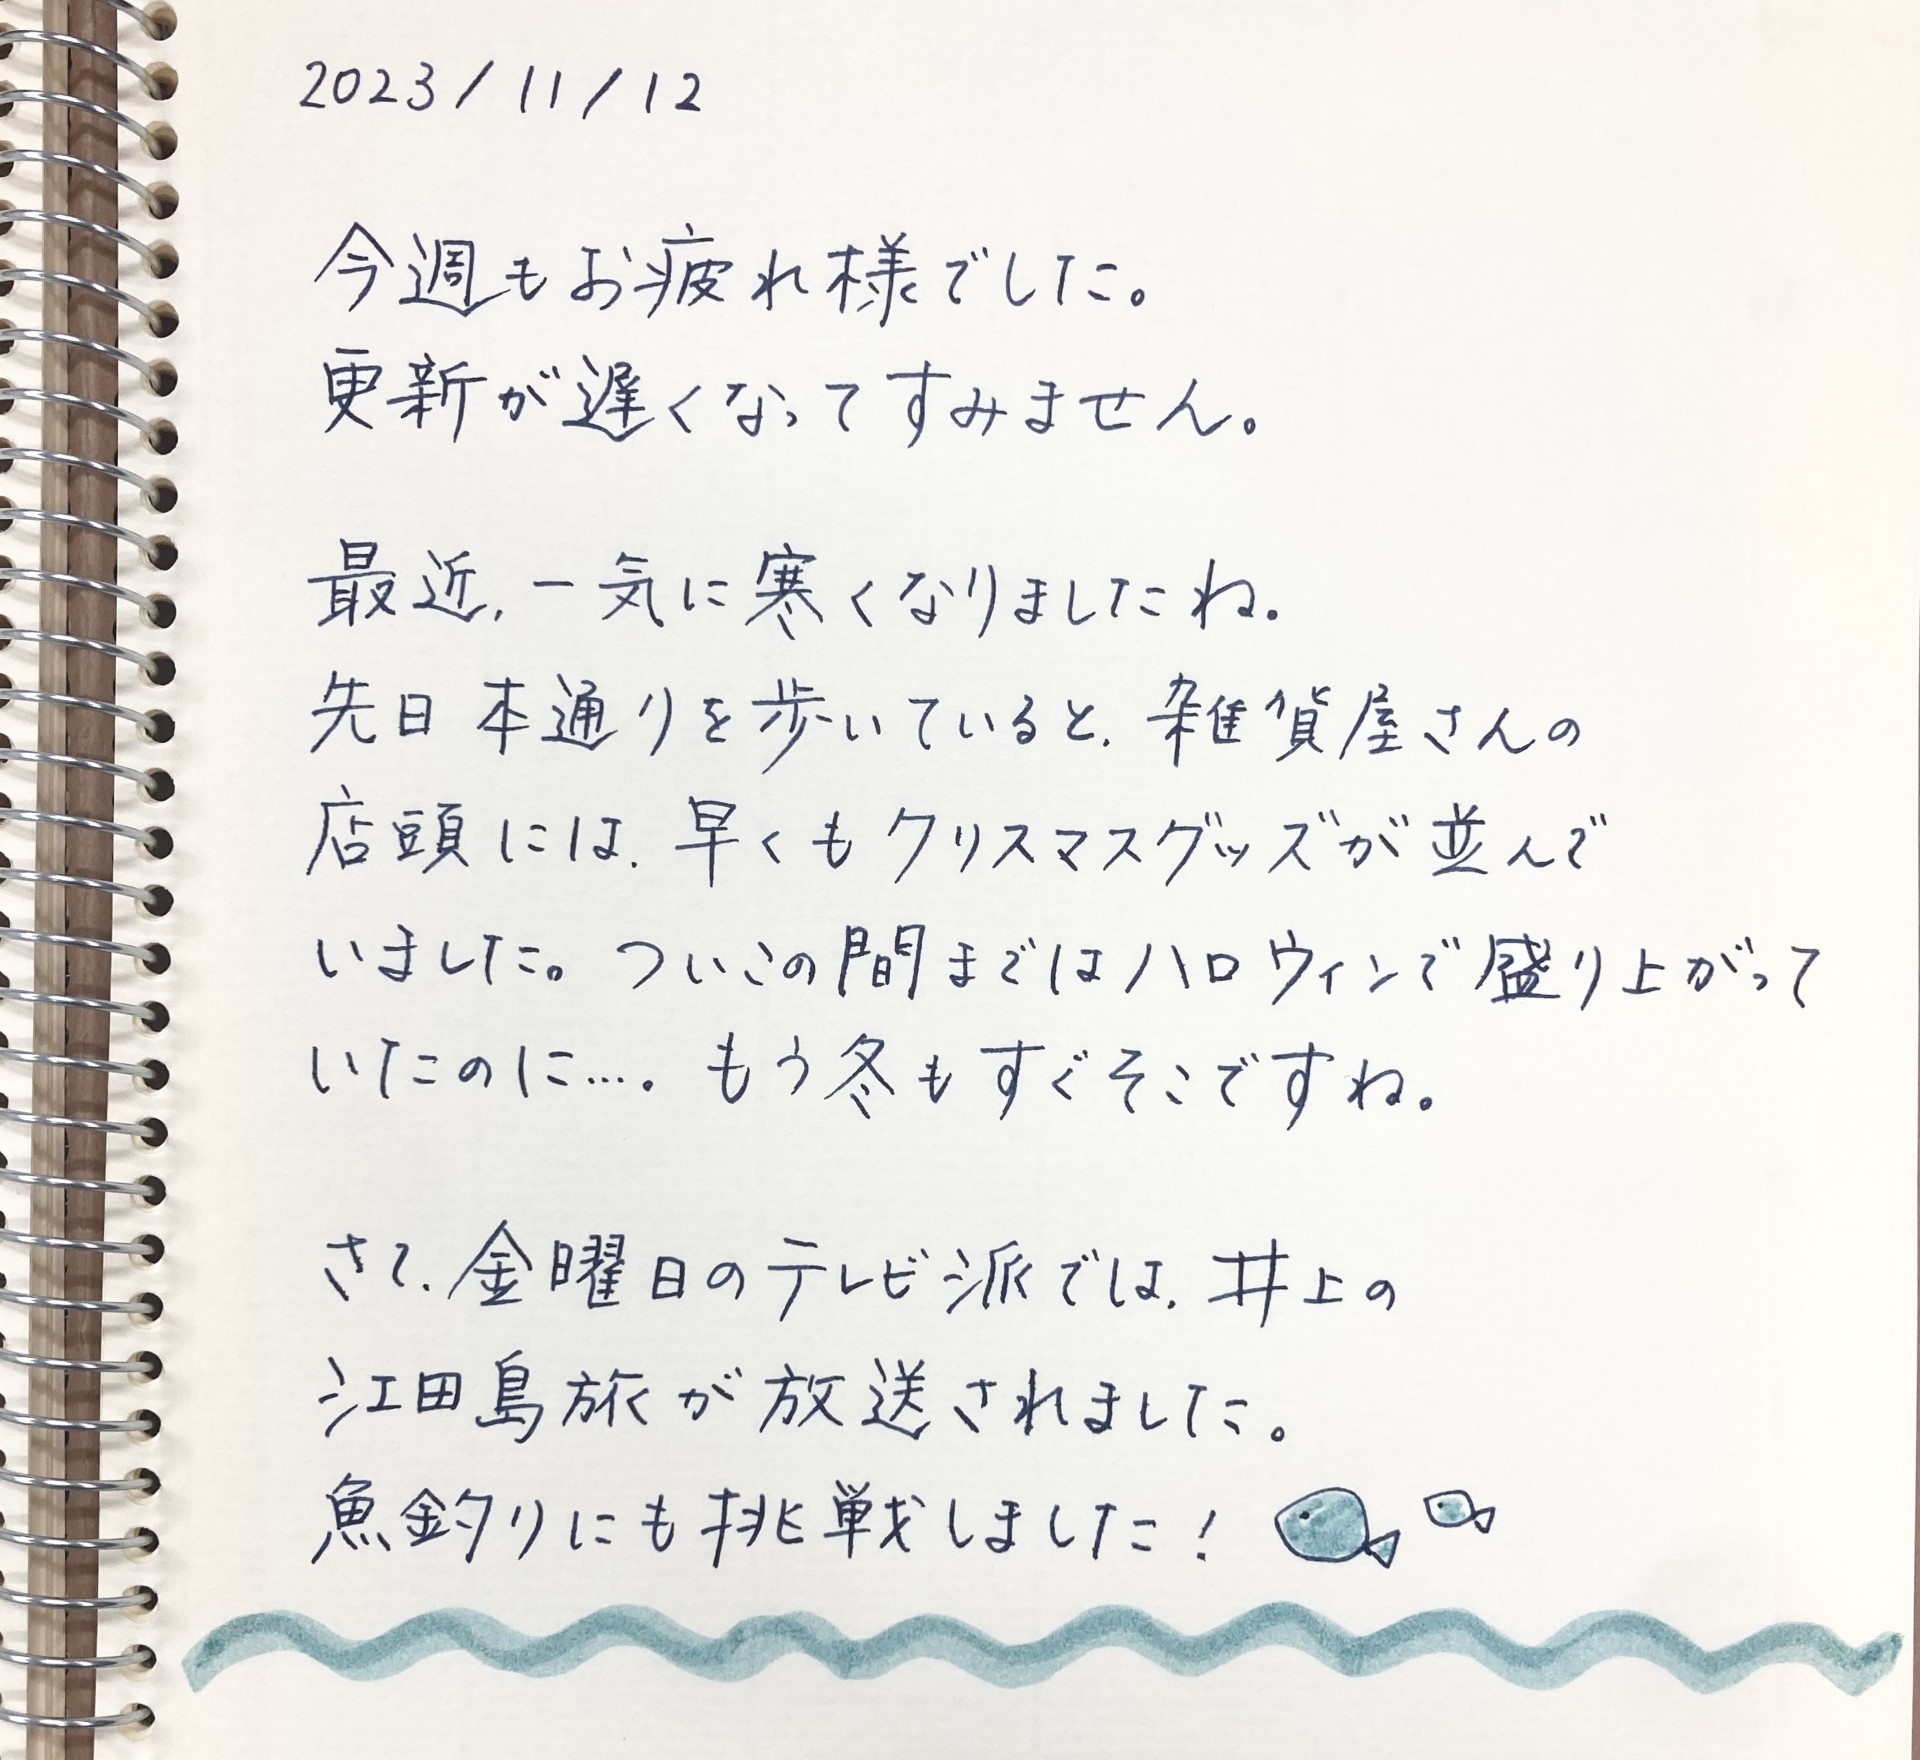 2023/11/12
今週もお疲れ様でした。
更新が遅くなってすみません。
最近、一気に寒くなりましたね。
先日本通りを歩いていると、雑貨屋さんの
店頭には、早くもクリスマスグッズが並んで
いました。ついこの間まではハロウィンで盛り上がって
いたのに…。もう冬もすぐそこですね。
さて、金曜日のテレビ派では、井上の
江田島旅が放送されました。
魚釣りにも挑戦しました！